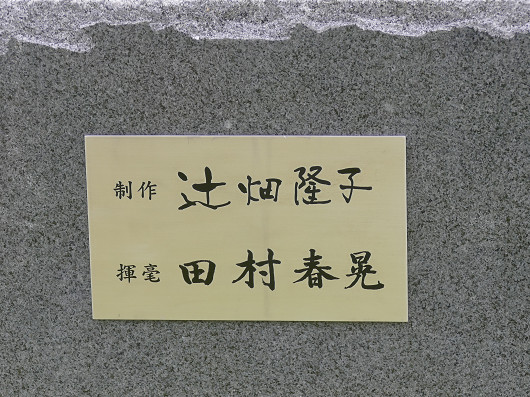 制作 辻畑隆子
揮毫 田村春晃